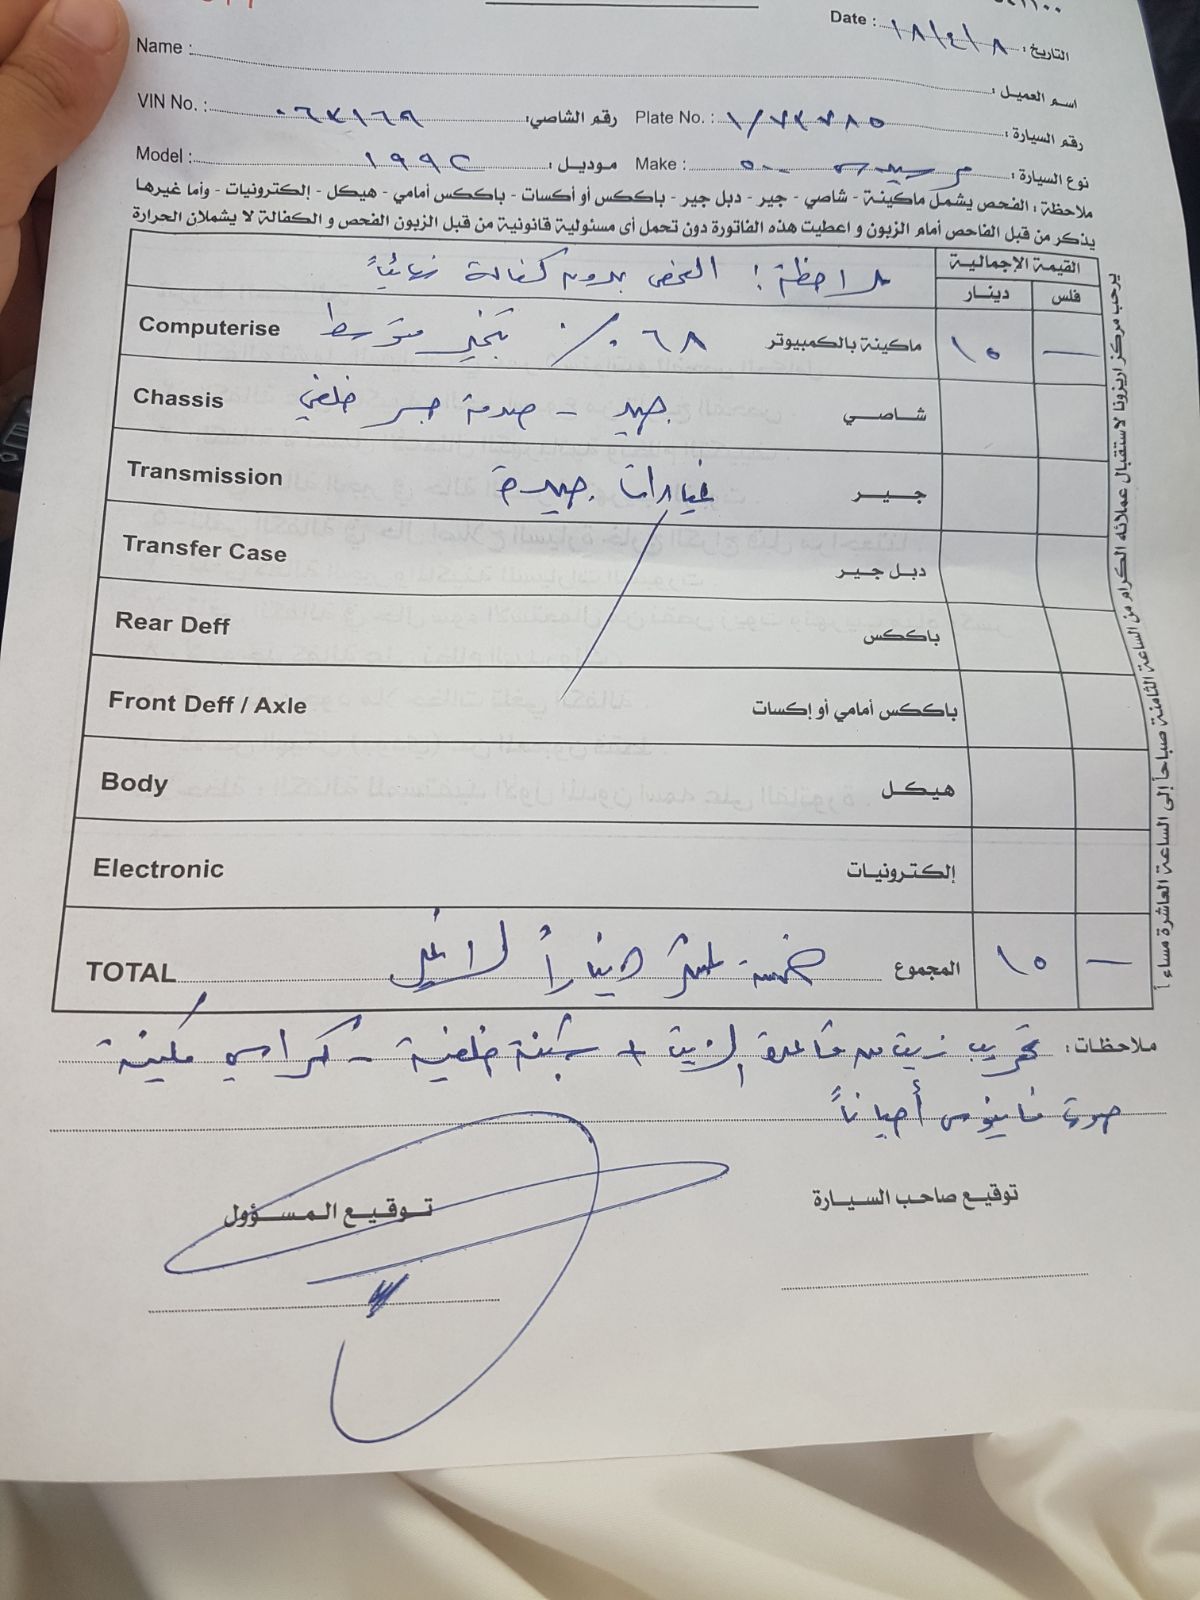 Date : ١٨/٤/٨ التاريخ :
Name : اسم العميل :
VIN No. : ٠٦٧١٦٩ رقم الشاصي: Plate No. : ١/٧٣٧٨٥ رقم السيارة :
Model : ١٩٩٢ موديل : Make : مرسيدس ٥٠٠ نوع السيارة :
ملاحظة : الفحص يشمل ماكينة - شاصي - جير - دبل جير - باككس أو أكسات - باككس أمامي - هيكل - إلكترونيات - وأما غيرها
يذكر من قبل الفاحص أمام الزبون و اعطيت هذه الفاتورة دون تحمل أى مسئولية قانونية من قبل الزبون الفحص و الكفالة لا يشملان الحرارة
القيمة الإجمالية
ملاحظة : الفحص بدون كفالة نهائياً
دينار فلس
Computerise ٦٨٪ تبخير متوسط ماكينة بالكمبيوتر ١٥ —
Chassis جيد - صدمة جسر خلفي شاصي
Transmission غيارات جيدة جير
Transfer Case دبل جير
Rear Deff باككس
Front Deff / Axle باككس أمامي أو إكسات
Body هيكل
Electronic إلكترونيات
TOTAL خمسة عشر ديناراً لا غير المجموع ١٥ —
يرحب مركز اريزونا لاستقبال عملائه الكرام من الساعة الثامنة صباحاً إلى الساعة العاشرة مساءاً
ملاحظات : تهريب زيت من قاعدة الزيت + جبنة خلفية - كراسي مكينة
صوت أحياناً
توقيع صاحب السيارة
توقيع المسؤول